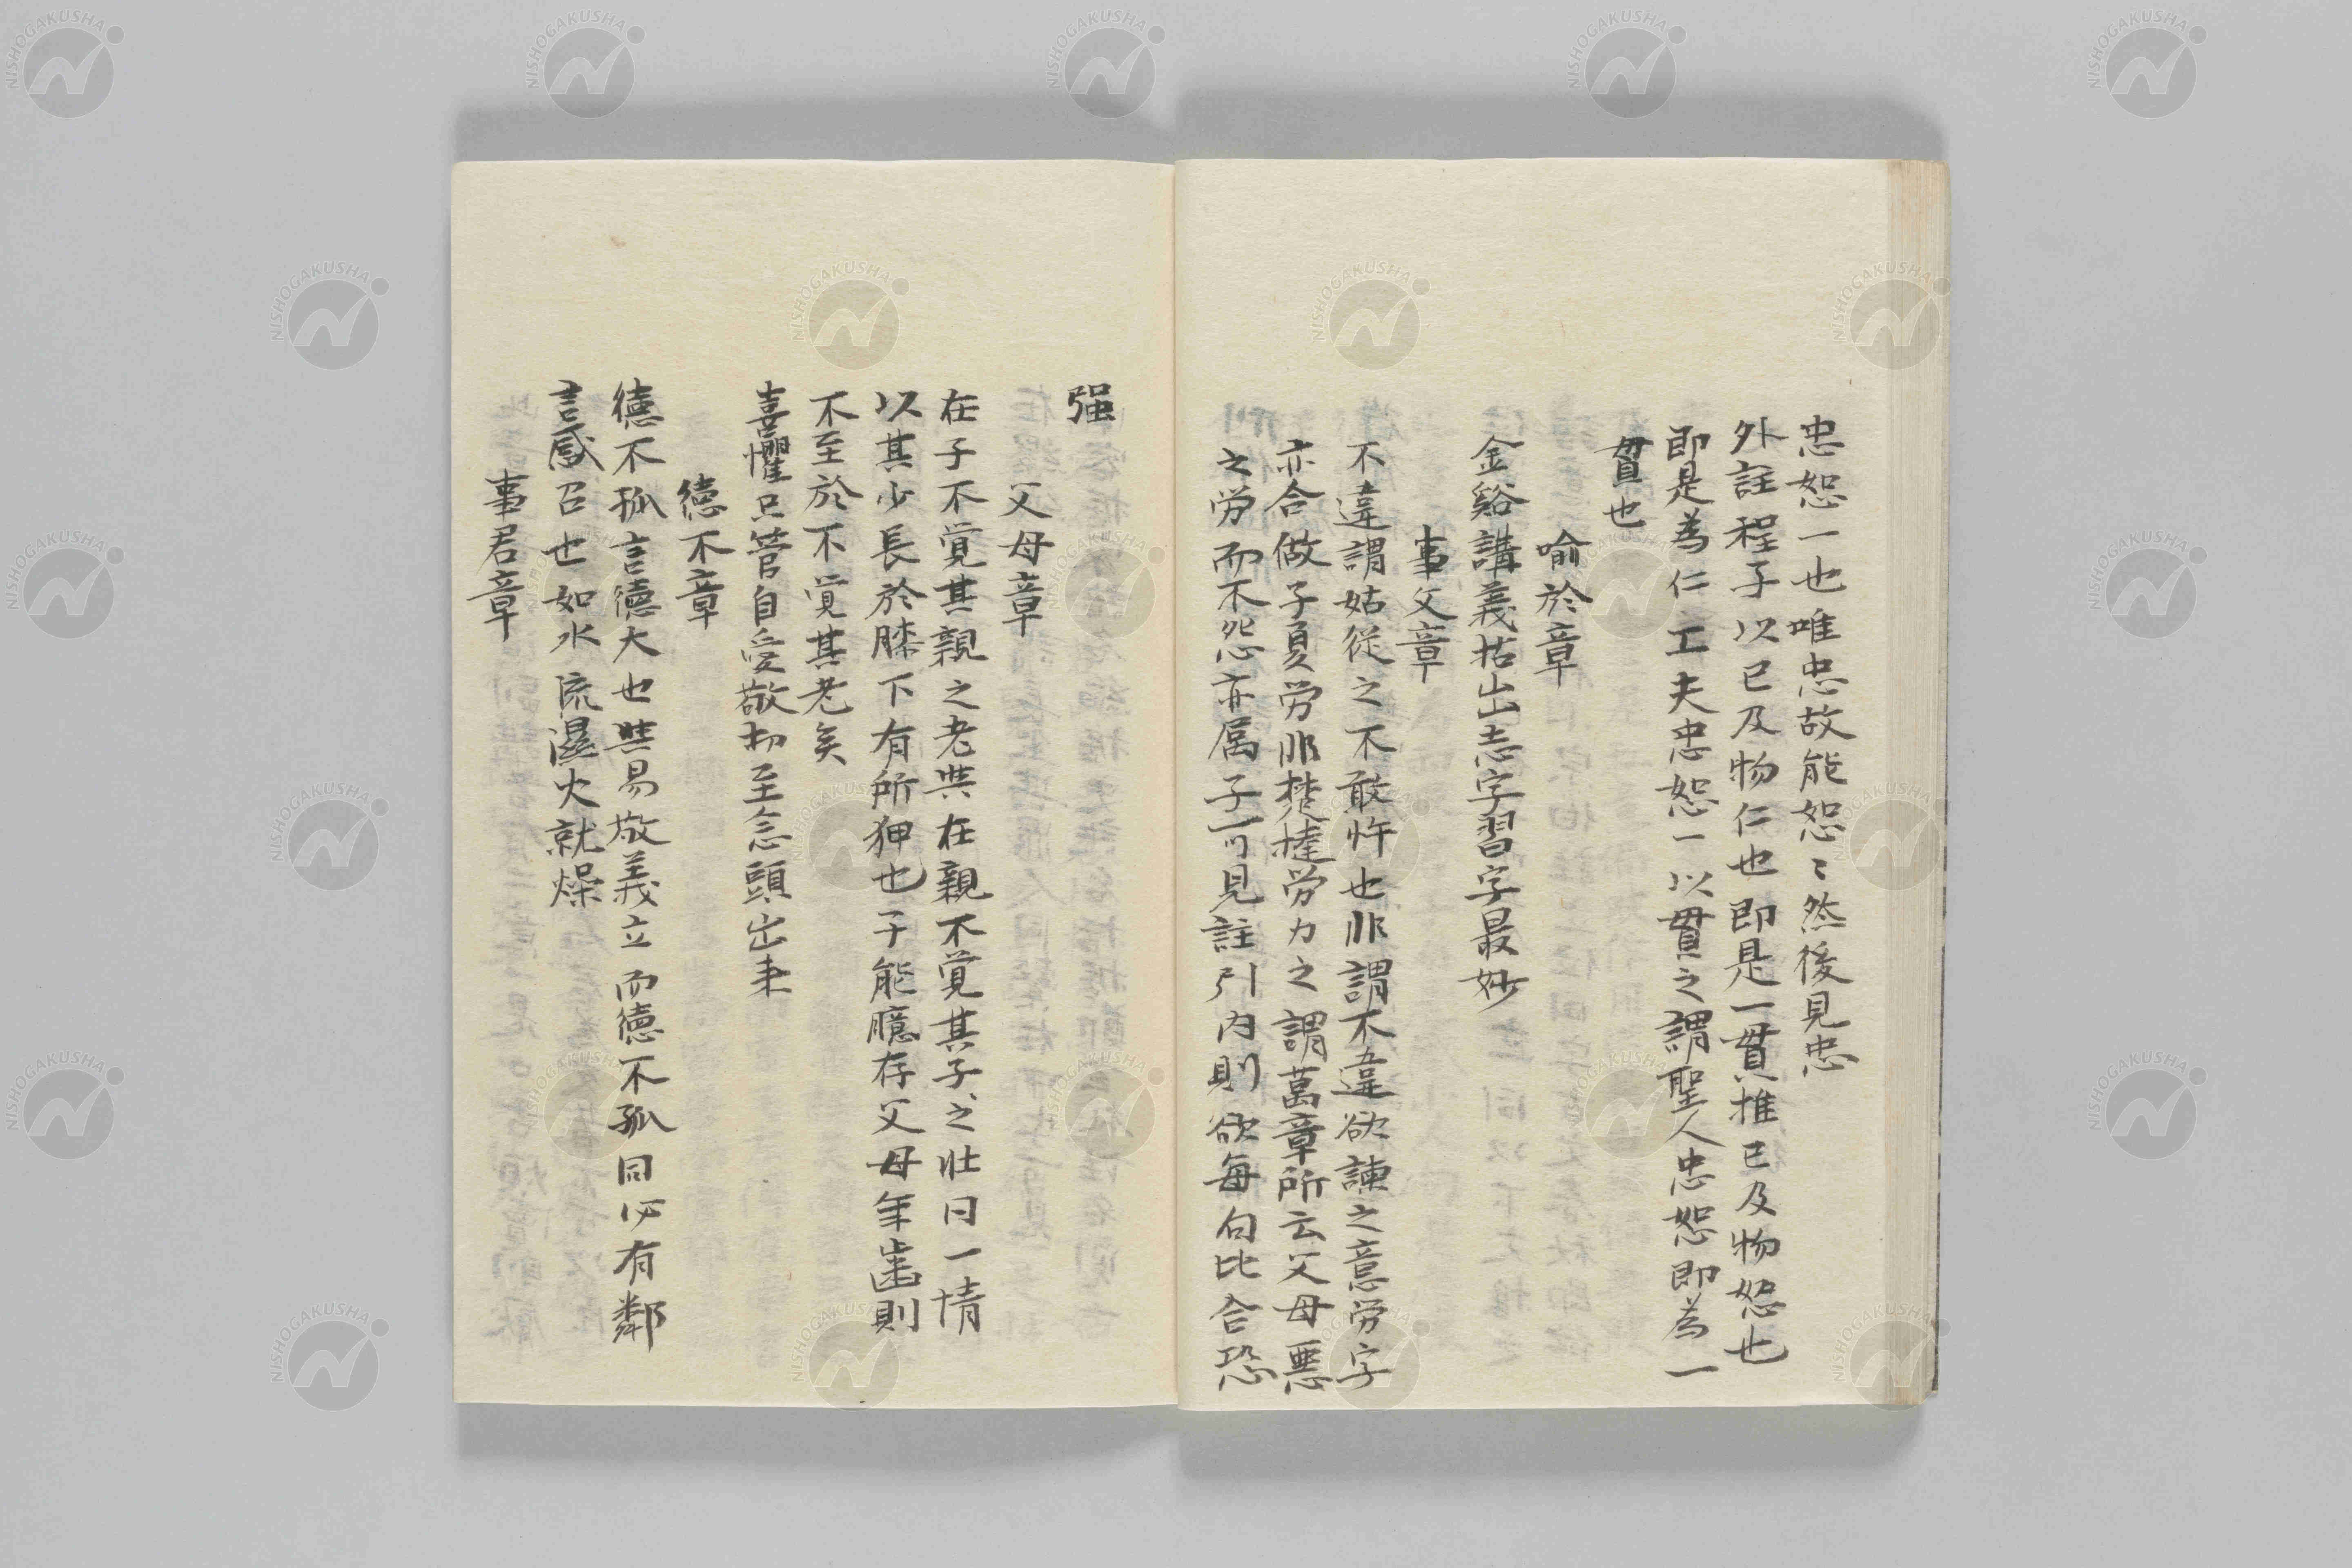 忠恕一也唯忠故能恕〻然後見忠
外註程子以己及物仁也即是一貫推己及物恕也
即是為仁工夫忠恕一以貫之謂聖人忠恕即為一
貫也
喻於章
金谿講義拈出志字習字最妙
事父章
不違謂姑從之不敢忤也非謂不違欲諫之意労字
亦合做子夏労非撻労力之謂萬章所云父母悪
之労而不怨亦属子可見註引内則欲每句比合恐
强
父母章
在子不覚其親之老與在親不覚其子之壮同一情
以其少長於膝下有所狎也子能臆存父母年歯則
不至於不覚其老矣
喜懼只管自受敬切至念頭出来
徳不章
徳不孤言徳大也與易敬義立而徳不孤同必有鄰
言感召也如水流濕火就燥
事君章
NISHOGAKUSHA